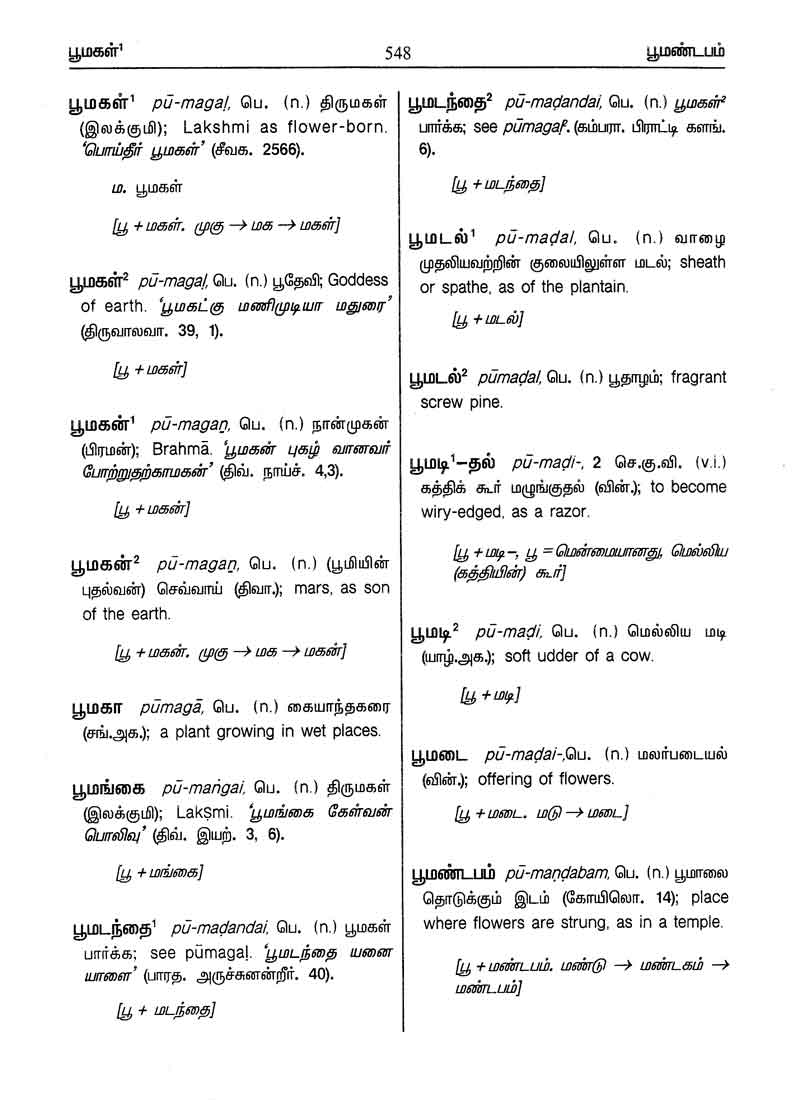 பூமகள்¹ 548 பூமண்டபம்
பூமகள்¹ pū-magaḷ, பெ. (n.) திருமகள்
(இலக்குமி); Lakshmi as flower-born.
‘பொய்தீர் பூமகள்’ (சீவக. 2566).
ம. பூமகள்
[பூ + மகள். முகு → மக → மகள்]
பூமகள்² pū-magaḷ, பெ. (n.) பூதேவி; Goddess
of earth. ‘பூமகட்கு மணிமுடியா மதுரை’
(திருவாலவா. 39, 1).
[பூ + மகள்]
பூமகன்¹ pū-magaṉ, பெ. (n.) நான்முகன்
(பிரமன்); Brahmā. ‘பூமகன் புகழ் வானவர்
போற்றுதற்காமகன்’ (திவ். நாய்ச். 4,3).
[பூ + மகன்]
பூமகன்² pū-magaṉ, பெ. (n.) (பூமியின்
புதல்வன்) செவ்வாய் (திவா.); mars, as son
of the earth.
[பூ + மகன். முகு → மக → மகன்]
பூமகா pūmagā, பெ. (n.) கையாந்தகரை
(சங்.அக.); a plant growing in wet places.
பூமங்கை pū-maṅgai, பெ. (n.) திருமகள்
(இலக்குமி); Lakṣmi. ‘பூமங்கை கேள்வன்
பொலிவு’ (திவ். இயற். 3, 6).
[பூ + மங்கை]
பூமடந்தை¹ pū-maḍandai, பெ. (n.) பூமகள்
பார்க்க; see pūmagaḷ. ‘பூமடந்தை யனை
யாளை’ (பாரத. அருச்சுனன்றீர். 40).
[பூ + மடந்தை]
பூமடந்தை² pū-maḍandai, பெ. (n.) பூமகள்²
பார்க்க; see pūmagaḷ². (கம்பரா. பிராட்டி களங்.
6).
[பூ + மடந்தை]
பூமடல்¹ pū-maḍal, பெ. (n.) வாழை
முதலியவற்றின் குலையிலுள்ள மடல்; sheath
or spathe, as of the plantain.
[பூ + மடல்]
பூமடல்² pūmaḍal, பெ. (n.) பூதாழம்; fragrant
screw pine.
பூமடி¹–தல் pū-maḍi-, 2 செ.கு.வி. (v.i.)
கத்திக் கூர் மழுங்குதல் (வின்.); to become
wiry-edged, as a razor.
[பூ + மடி–, பூ = மென்மையானது, மெல்லிய
(கத்தியின்) கூர்]
பூமடி² pū-maḍi, பெ. (n.) மெல்லிய மடி
(யாழ்.அக.); soft udder of a cow.
[பூ + மடி]
பூமடை pū-maḍai-,பெ. (n.) மலர்படையல்
(வின்.); offering of flowers.
[பூ + மடை. மடு → மடை]
பூமண்டபம் pū-maṇḍabam, பெ. (n.) பூமாலை
தொடுக்கும் இடம் (கோயிலொ. 14); place
where flowers are strung, as in a temple.
[பூ + மண்டபம். மண்டு → மண்டகம் →
மண்டபம்]